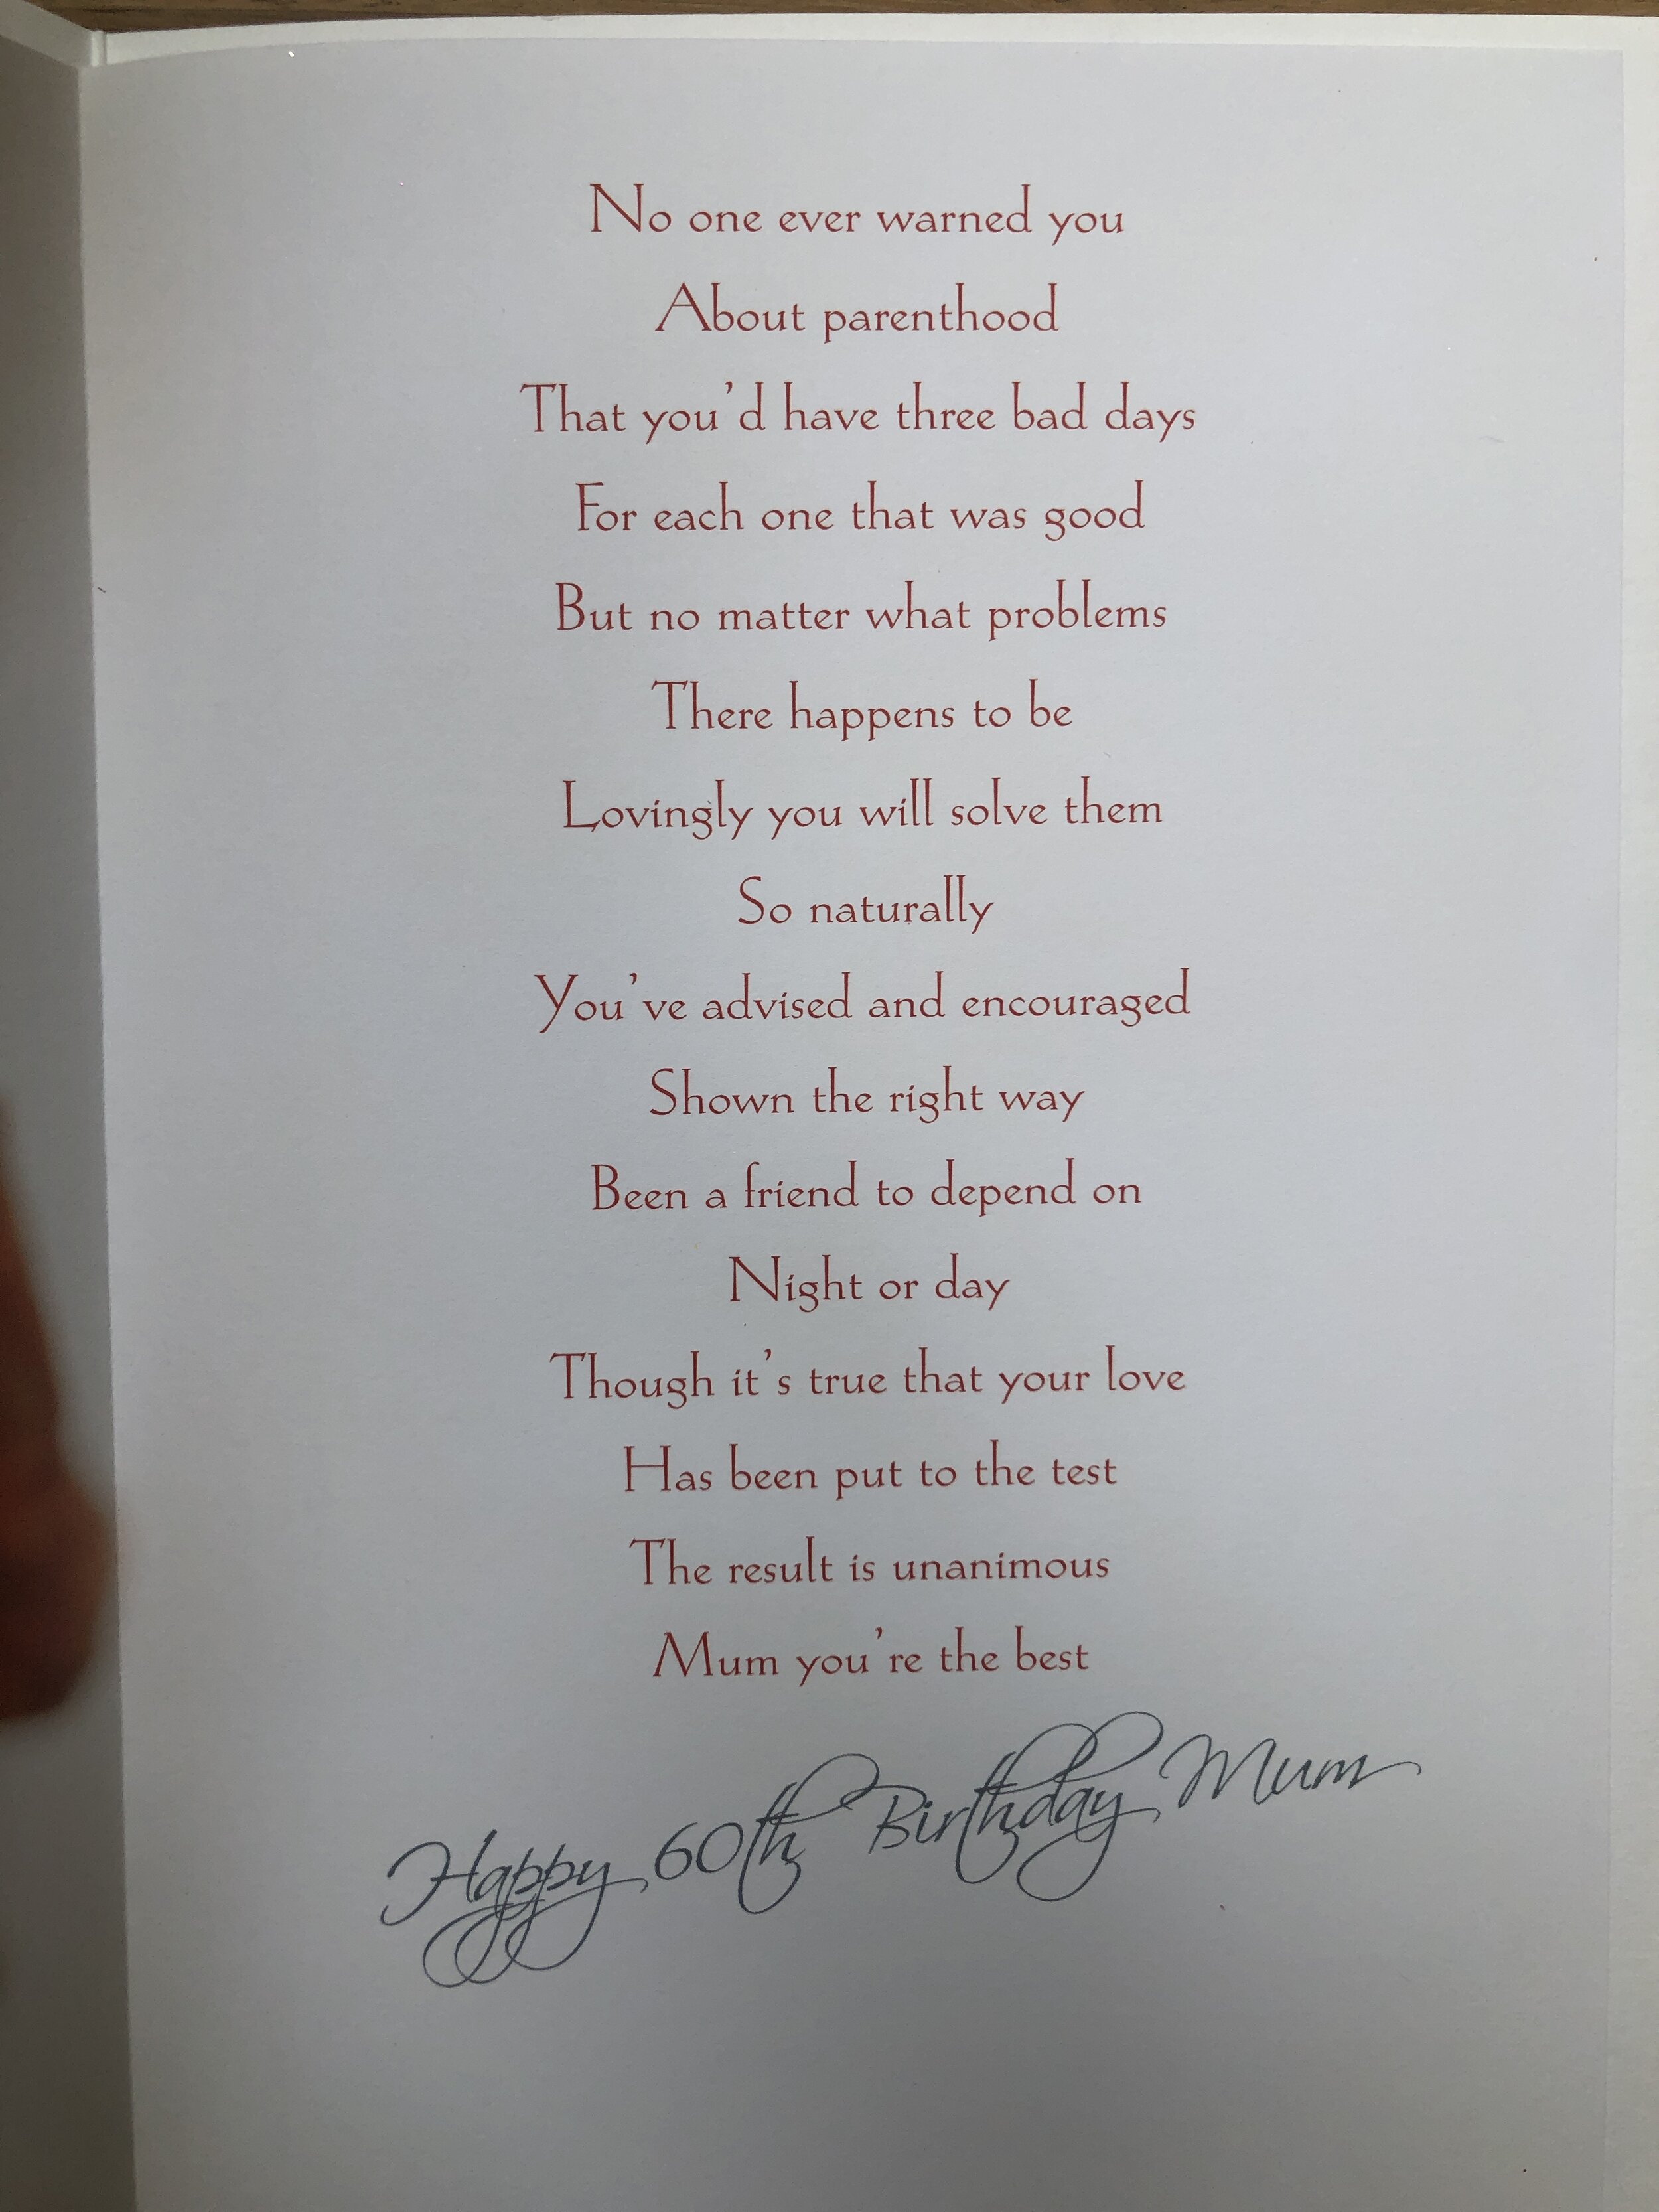 No one ever warned you
About parenthood
That you'd have three bad days
For each one that was good
But no matter what problems
There happens to be
Lovingly you will solve them
So naturally
You've advised and encouraged
Shown the right way
Been a friend to depend on
Night or day
Though it's true that your love
Has been put to the test
The result is unanimous
Mum you're the best
Happy 60th Birthday Mum